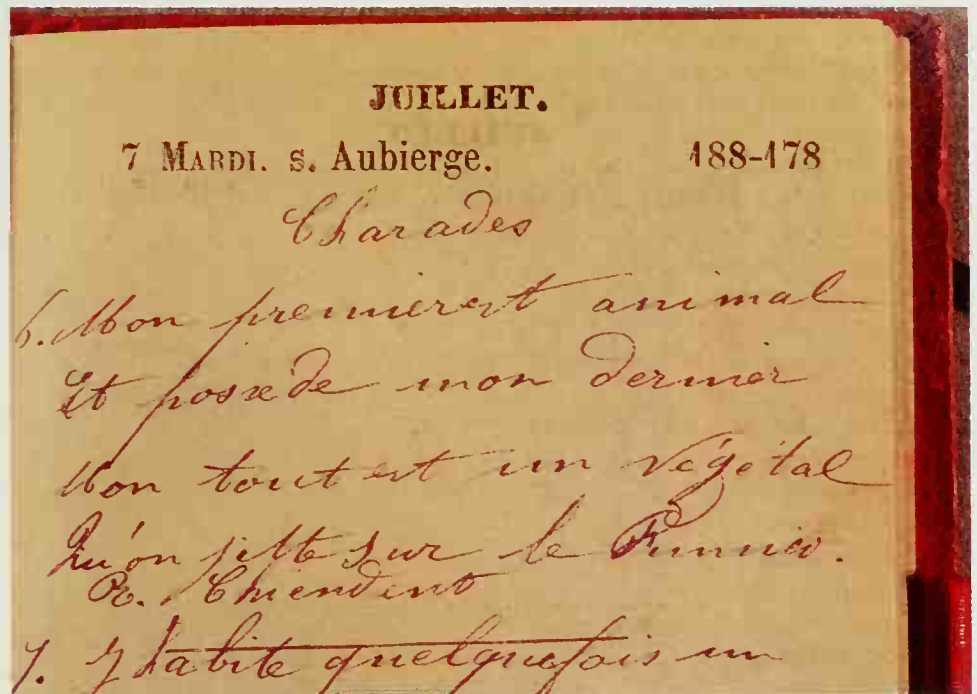 JUILLET.
7 MARDI. s. Aubierge. 188-178
Charades
6. Mon premier est animal
Et possède mon dernier
Mon tout est un végétal
Qu'on jette sur le Fumier.
R. Chiendent
7. J'habite quelquefois un